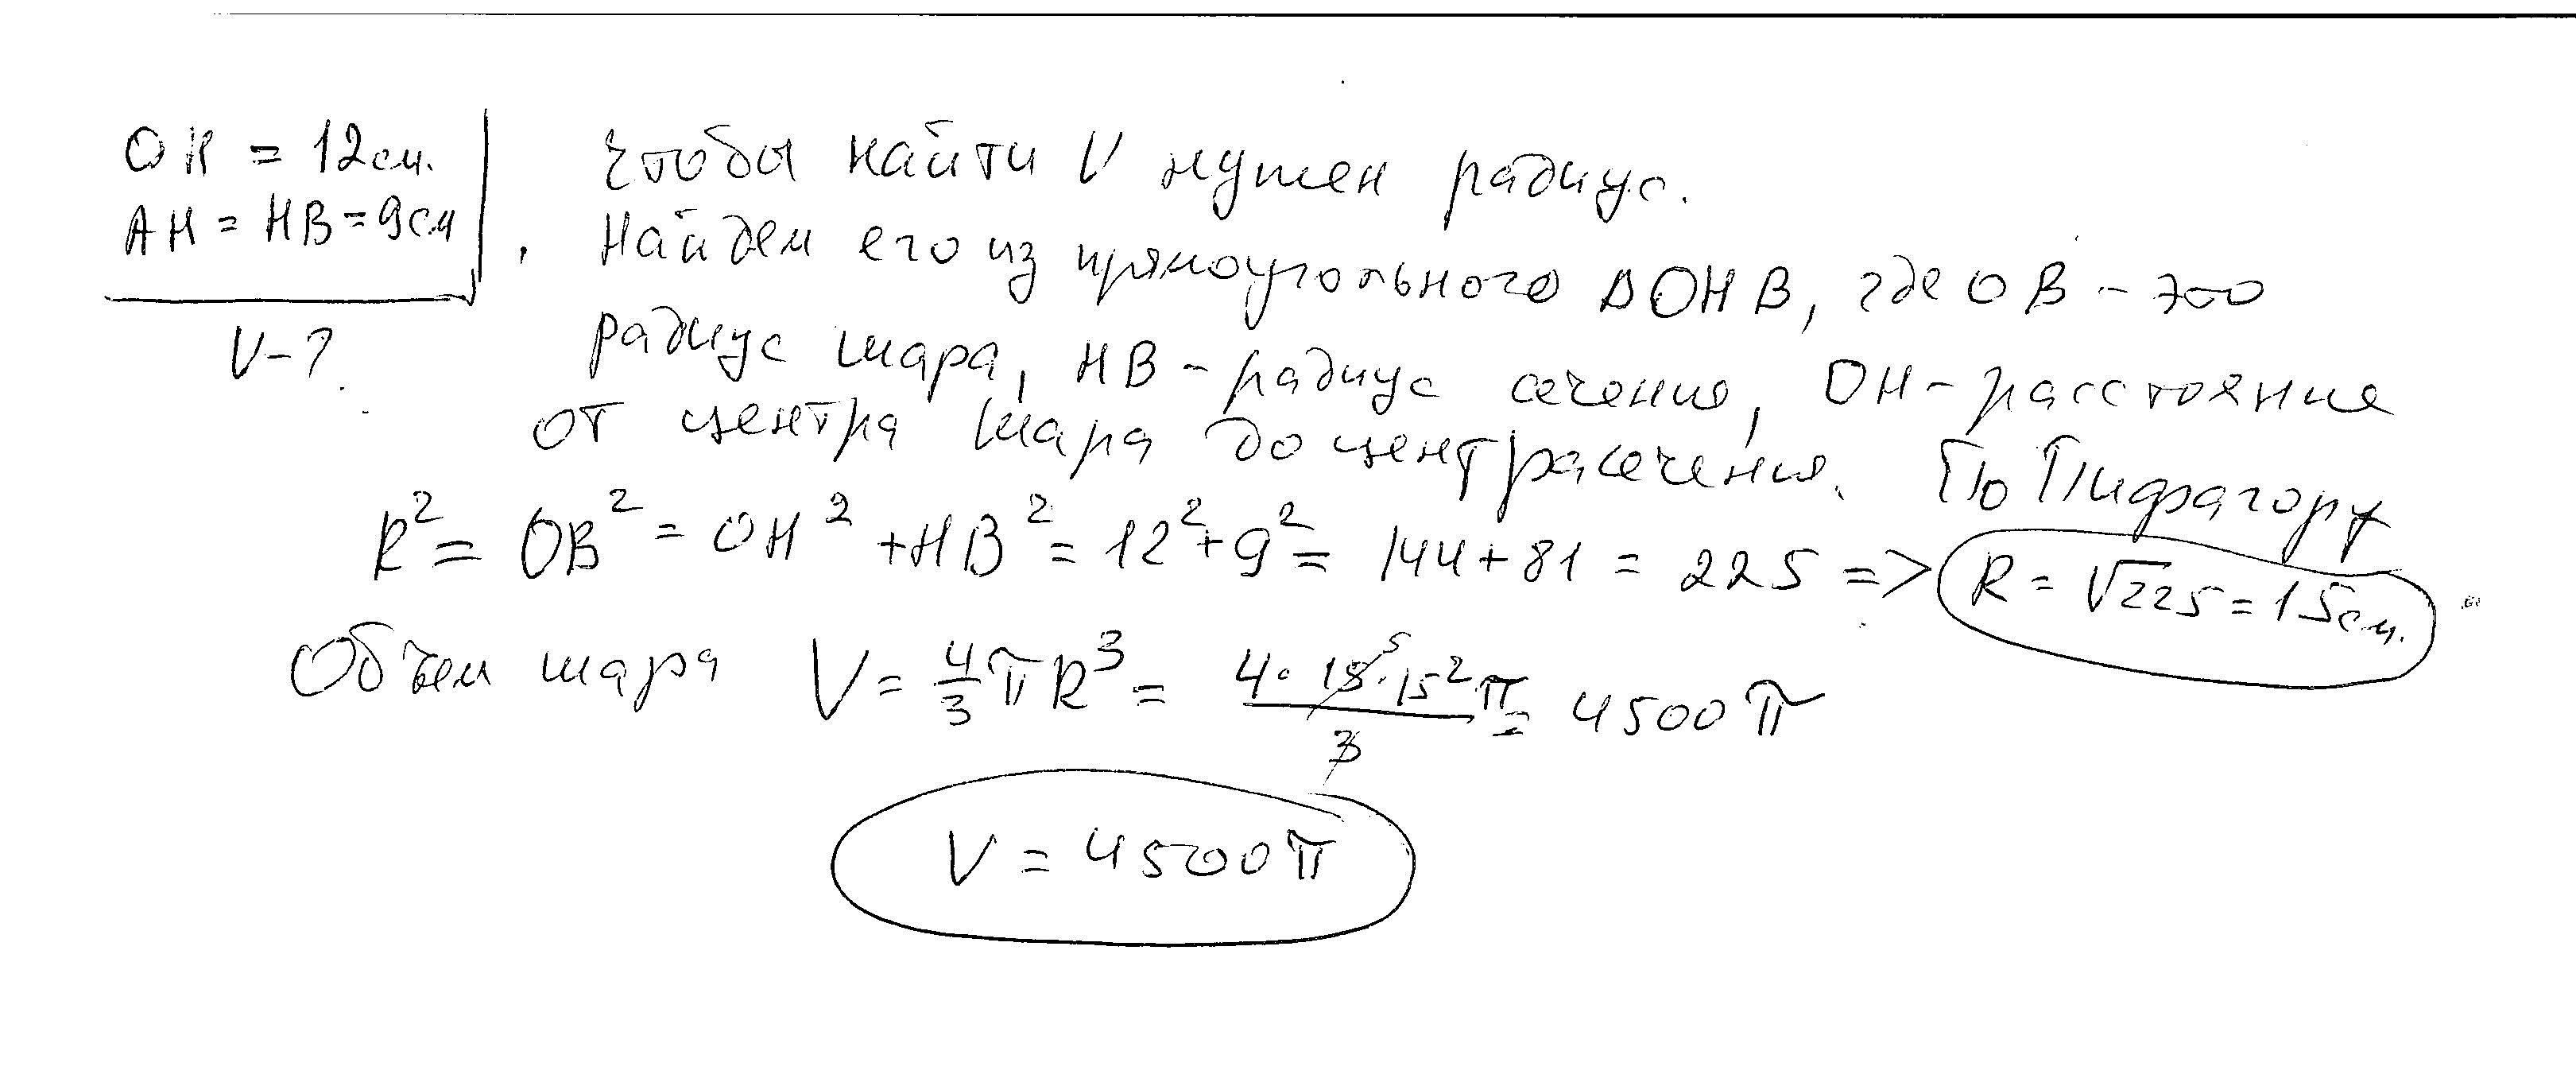 OH = 12см.
AH = HB = 9см
V - ?
Чтобы найти V нужен радиус.
Найдем его из прямоугольного ΔOHB, где OB - это
радиус шара, HB - радиус сечения, OH - расстояние
от центра шара до центра сечения. По Пифагору
R² = OB² = OH² + HB² = 12² + 9² = 144 + 81 = 225 => R = √225 = 15см.
Объем шара V = 4/3 πR³ = 4·15⁵·15²π/3 = 4500π
V = 4500π